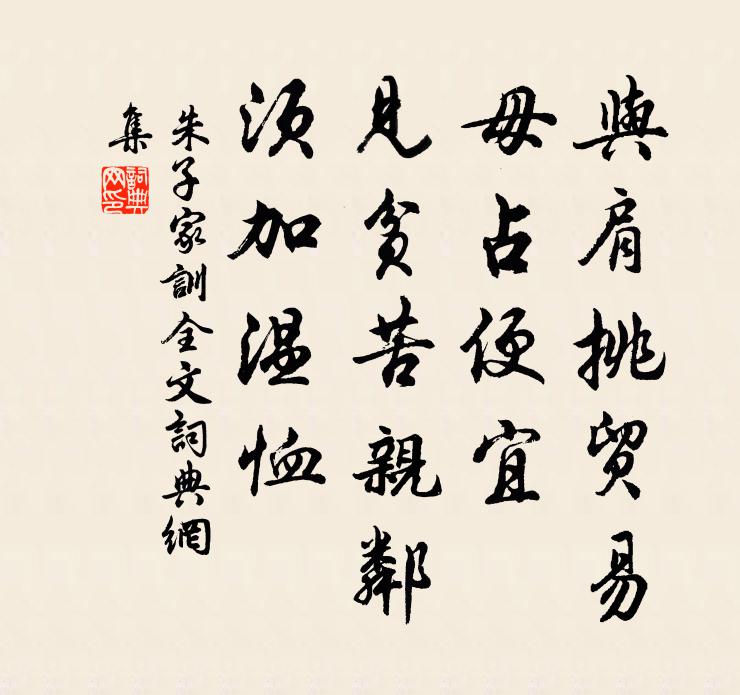 與肩挑貿易
毋占便宜
見貧苦親鄰
須加溫恤
朱子家訓全文詞典網
集
詞典
网印